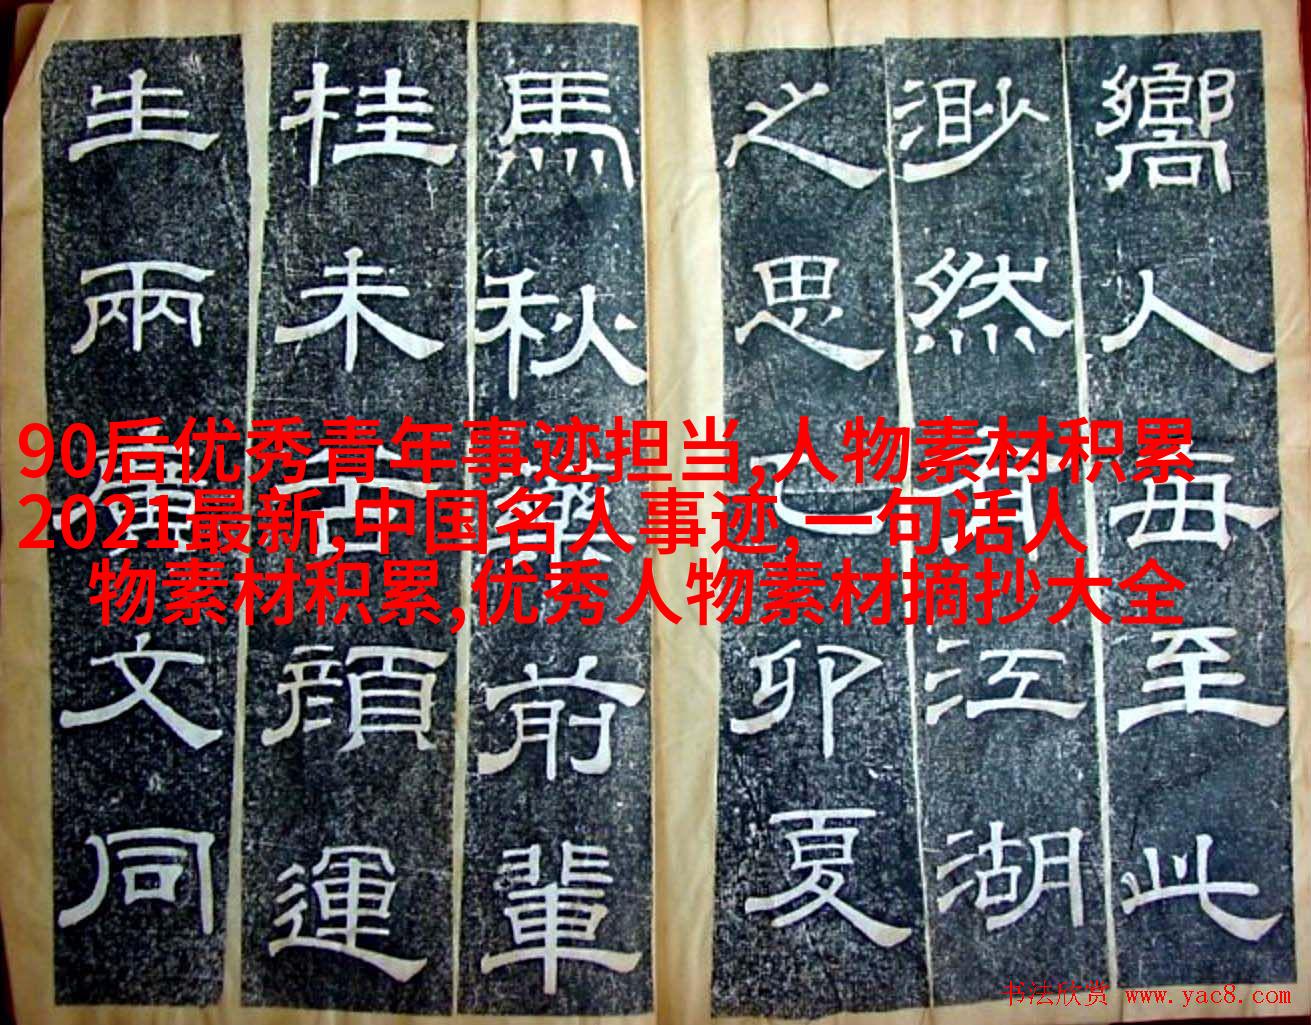 嚮人每至此
渺然有江湖
之思乙卯夏
馬秋藥前輩
桂未谷顏運
生兩廣文同
90后优秀青年事迹担当,人物素材积累
2021最新,中国名人事迹,一句话人
物素材积累,优秀人物素材摘抄大全
书法欣赏 www.yac8.com